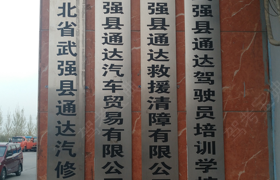 北省武强县通达汽修
强县通达汽车贸易有限公
强县通达救援清障有限公
强县通达驾驶员培训学